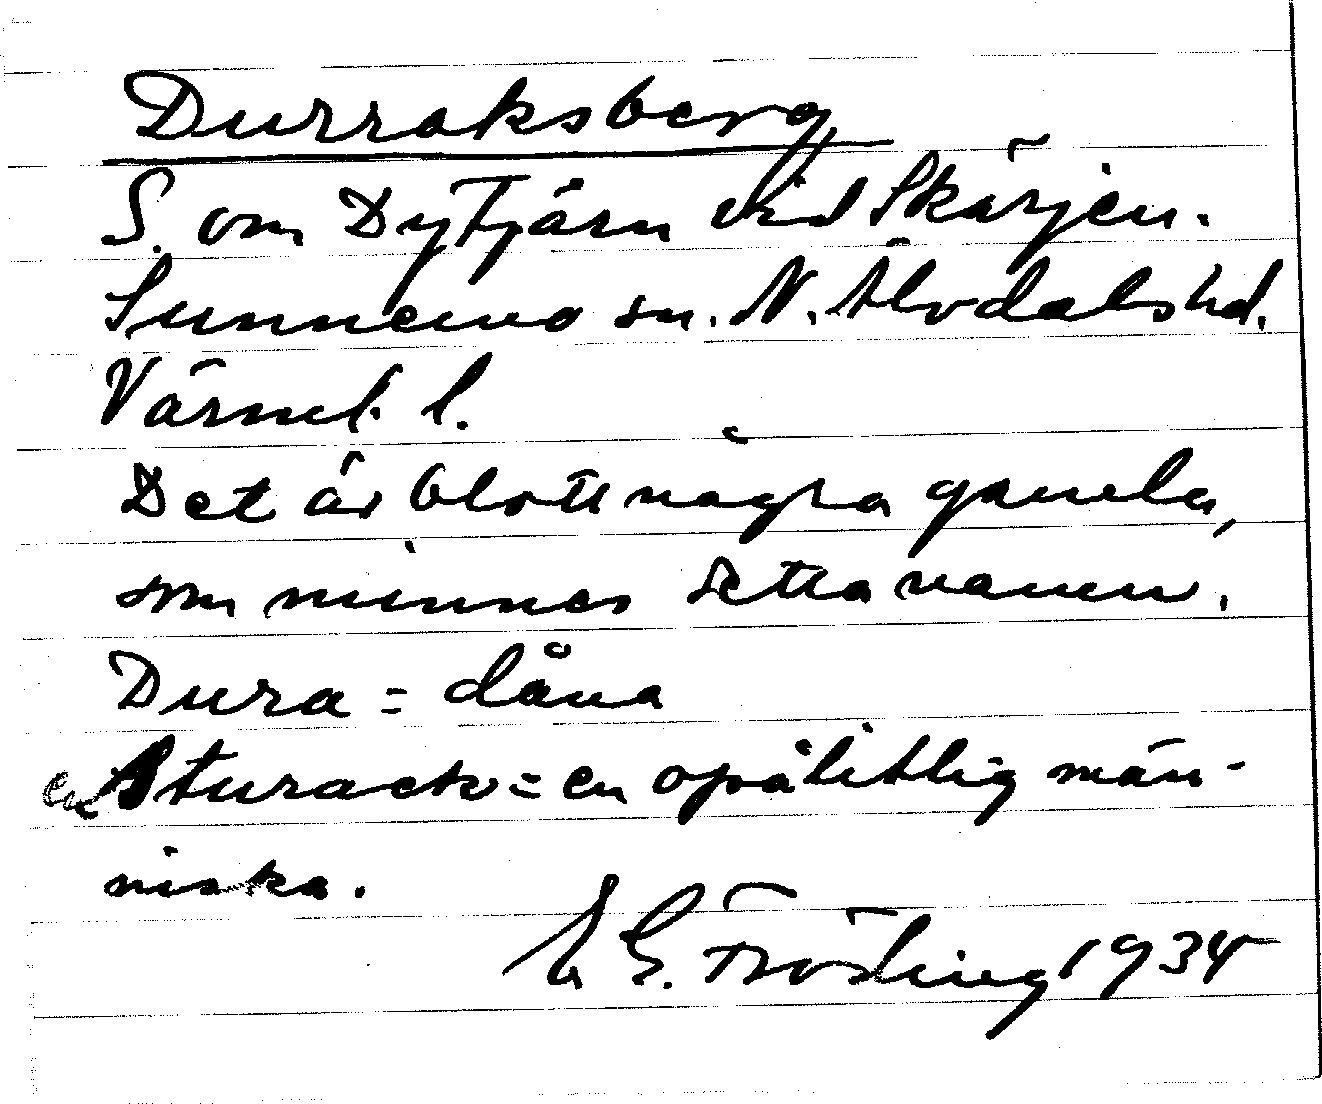 Durraksberg
S. om Dytjärn vid Skärjen.
Sunnemo sn. N. Älvdals hd.
Värml. l.
Det är blott några gamla,
som minnes detta namn.
Dura = dåna
en Sturack = en opålitlig män-
niska.
E G. Fröding 1934